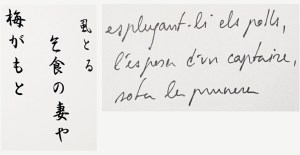 虱とる
乞食の妻や
梅がもと
esplugant-li els polls,
l'esposa d'un captaire,
sota la prunera